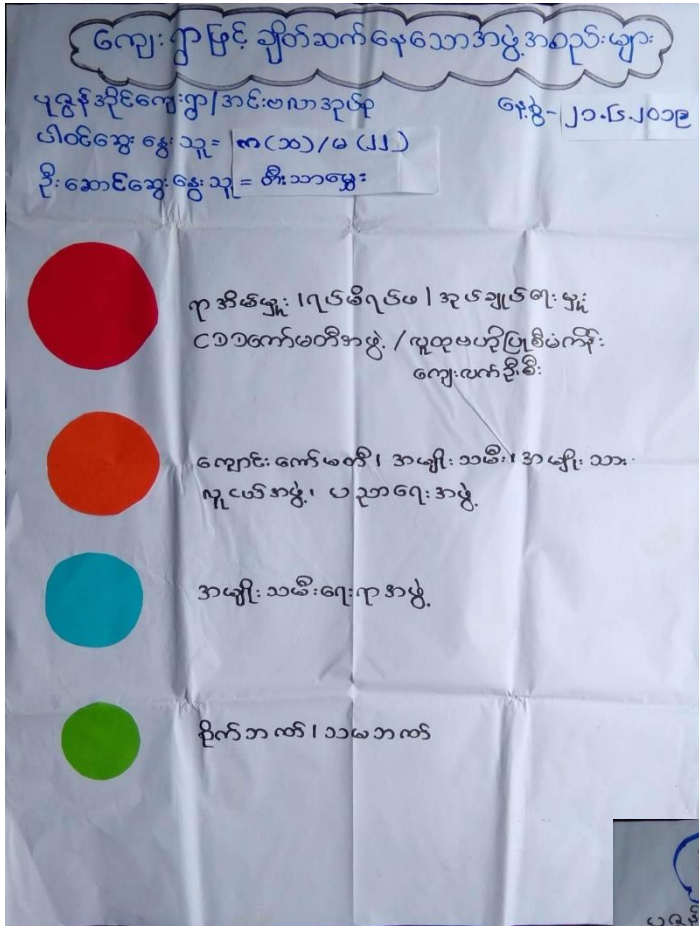 ကျေးရွာဖြင့် ချိတ်ဆက်နေသောအဖွဲ့အစည်းများ
ပုဇွန်အိုင်ကျေးရွာ/အင်းဗလာအုပ်စု
နေ့စွဲ-၂၁.၆.၂၀၁၉
ပါဝင်ဆွေးနွေးသူ= ကျ(၁၀)/မ(၂၂)
ဦးဆောင်ဆွေးနွေးသူ=
ရာအိမ်မှူး၊ရပ်မိရပ်ဖ၊အုပ်ချုပ်ရေးမှူး
ငါးကော်မတီအဖွဲ့/လူထုဗဟိုပြုစီမံကိန်း
ကျေးလက်ဦးစီး
ကျောင်းကော်မတီ၊ အမျိုးသမီး၊အမျိုးသား
လူငယ်အဖွဲ့၊ ပညာရေးအဖွဲ့
အမျိုးသမီးရေးရာအဖွဲ့
စိုက်ဘဏ်၊သမဘဏ်
ပုဇွန်